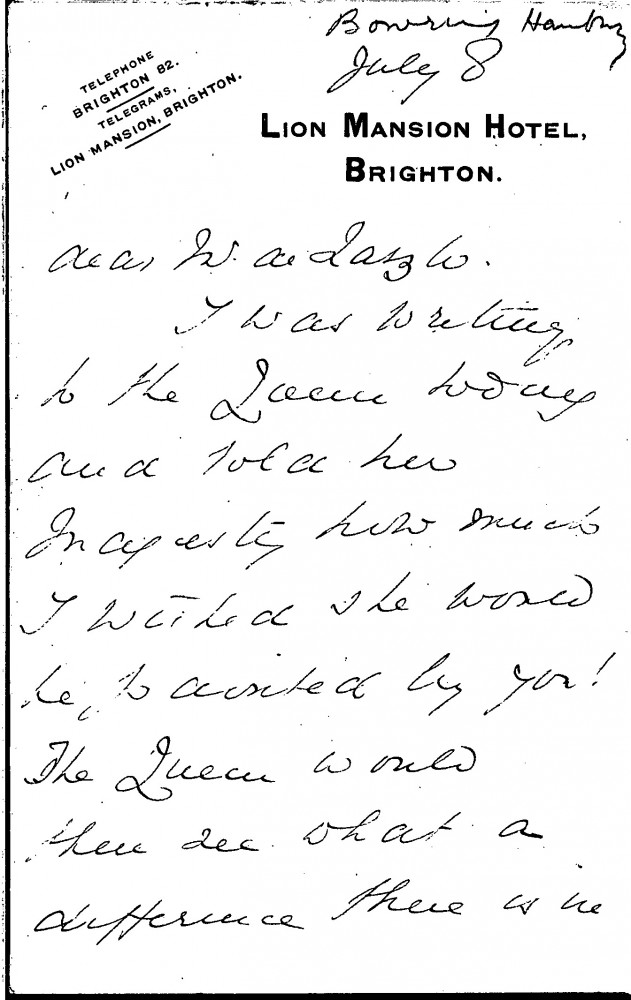 Bowring Hanbury
July 8
TELEPHONE
BRIGHTON 82.
TELEGRAMS,
LION MANSION, BRIGHTON.
LION MANSION HOTEL,
BRIGHTON.
dear Mr. de Laszlo.
I was writing
to the Queen today
and told her
Majesty how much
I wished she would
be painted by you!
The Queen would
then see what a
difference there is in